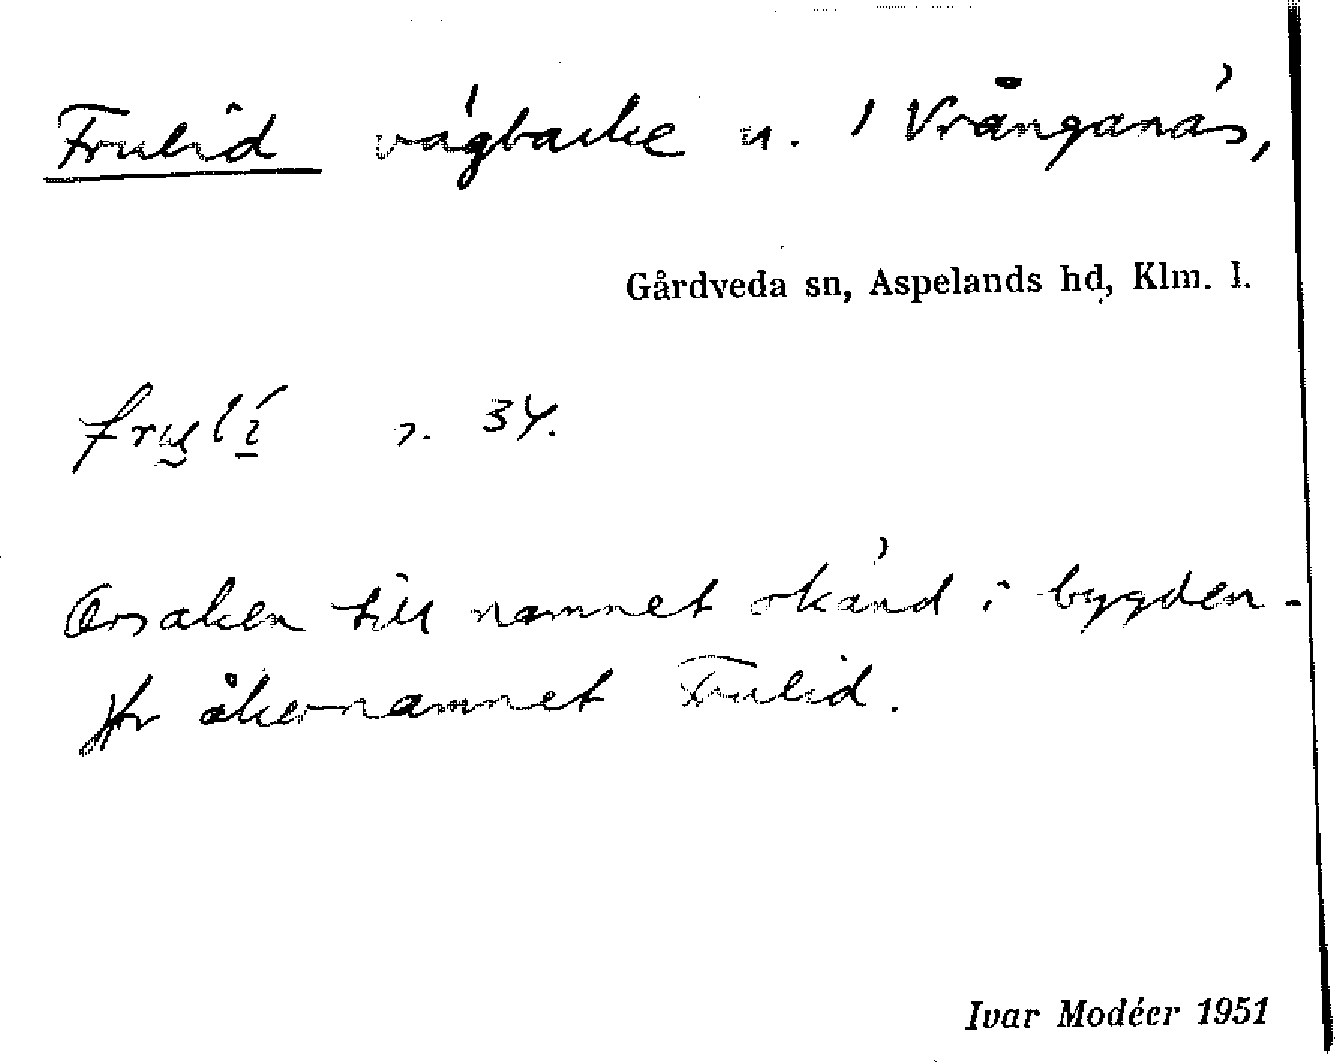 Frulid vägbacke u. 1 Vrånganäs,
Gårdveda sn, Aspelands hd, Klm. l.
s. 34.
Orsaken till namnet okänd i bygden.
Jfr åkernamnet Frulid.
Ivar Modéer 1951